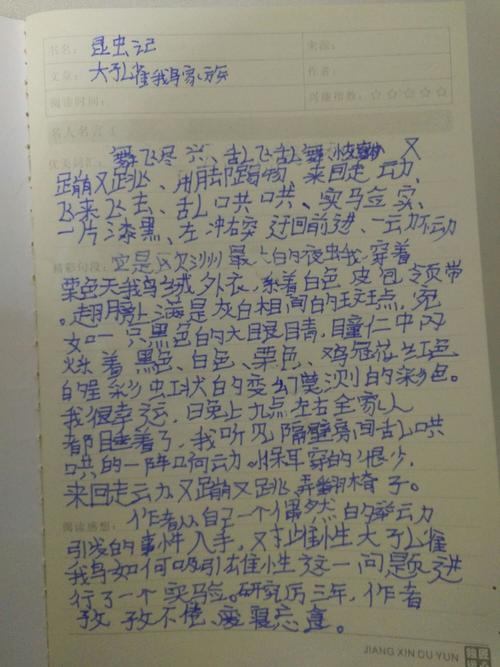 书名: 昆虫记 来源:
文章: 大孔雀蛾家族 作者:
阅读时间: 兴趣指数: ☆☆☆☆☆
名人名言:
优美词汇: 舞飞尽兴、乱飞乱舞、又
蹦又跳、用脚踢物、来回走动、
飞来飞去、乱哄哄、实马佥室、
一片漆黑、左冲右突 迂回前进、一动不动
精彩句段: 它是欧洲最大的夜虫蛾.穿着
栗色天鹅绒外衣,系着白色皮包领带
。翅膀上满是灰白相间的斑点,宛
如一只黑色的大眼睛,瞳仁中闪
烁着黑色、白色、栗色、鸡冠花红色
的呈彩虹状的变幻莫测的彩色。
我很幸运,日免上九点左右全家人
都睡着了,我听见隔壁房间乱哄
哄的一阵响动.小保耳穿的很少,
来回走动又蹦又跳,弄翻椅子。
阅读感想: 作者从自己一个偶然的举动
引发的事件入手,对雌性大孔雀
蛾如何吸引雄性这一问题进
行了一个实验。研究历三年,作者
孜孜不倦,废寝忘食。
JIANG XIN DU YUN